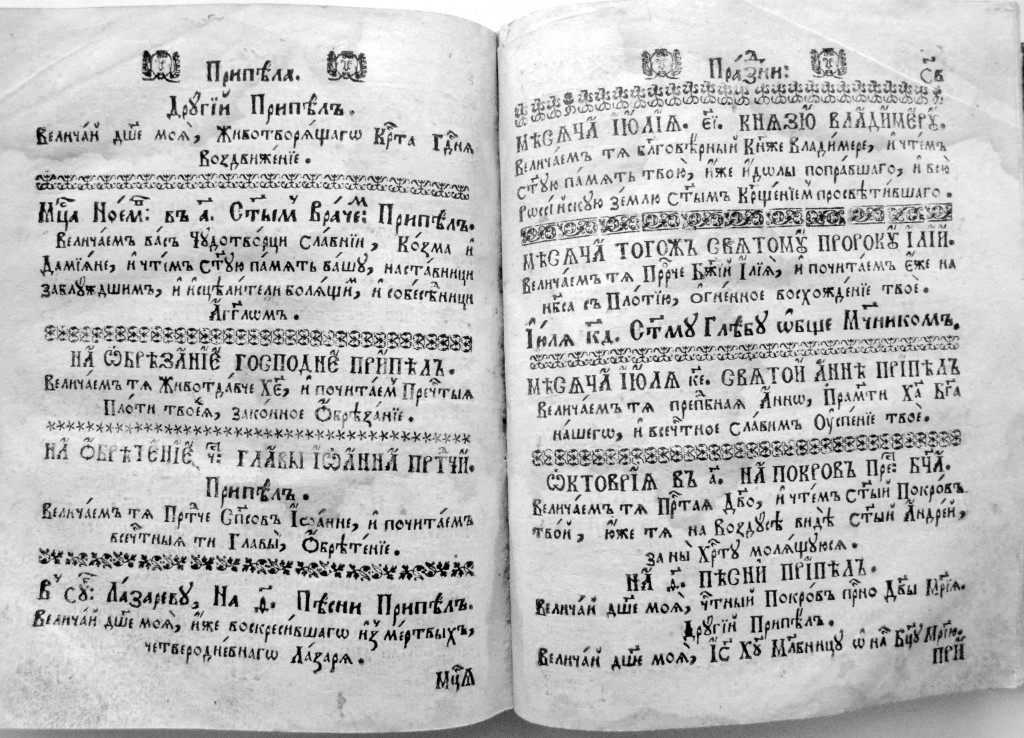 Припѣла.
Другїй Припѣлъ.
Величай дш҃е моѧ̀, Животворѧщагѡ Крⷭ҇та Гдⷭ҇нѧ
Воздвиженїе.
Мцⷭ҇а Ноем̑: въ а҃. Ст҃ымъ Враче́м: Припѣлъ.
Величаемъ васъ Чꙋдотворци Славнїи, Козма и҆
Дамїѧне, и҆ чтемъ ст҃ꙋю па́мѧть вашꙋ, наста́вници
заблꙋждшимъ, и҆ и҆сцѣлители болѧщиⷨ, и҆ собесѣⷣници
А҆́гг҃лѡмъ.
НА ѠБРѢЗАНЇЕ ГОСПОДНЕ ПРИПѢЛЪ.
Величаемъ тѧ Животда́вче Хе҃, и҆ почитаеⷨ Преⷱ҇тыѧ
Плоти твоеѧ̀, законное Ѻ҆брѣзанїе.
НА ѺБРѢТЕНЇЕ чⷭ҇: ГЛАВЫ ІѠАННА ПРТⷣЧИ.
Припѣлъ.
Величаемъ тѧ Прⷣтче Сп҃совъ І҆ѡа́нне, и҆ почитаемъ
всечⷭ҇тныѧ ти Главы̀, Ѻ҆брѣтенїе.
В̾ сꙋⷠ: Ла́заревꙋ, На ѳ҃. Пѣсни Припѣлъ.
Величай дш҃е моѧ̀, и҆́же воскресившаго и҆з̾ мертвыхъ,
четверодневнагѡ Ла́зарѧ.
Мцⷭ҇ѧ
Пра́здⷣни: св҃
МѢСѦЧА ІꙋЛЇѦ. еі҃. КНѦЗЮ ВЛАДИМЕРꙋ.
Величаем тѧ бл҃говѣрный Кнѧ҃же Владимере, и҆ чтем
ст҃ꙋю па́мѧть твою̀, и҆́же и҆́дѡлы поправшаго, и҆ всю̀
Рѡссі́йскꙋю зе́млю ст҃ымъ Крⷳ҇щенїем просвѣтившаго.
МѢСѦЧА ТОГОЖЪ СВѦТОМꙋ ПРОРОКꙋ ІЛІИ.
Величаемъ тѧ Прⷪ҇рче Бж҃їй І҆лїѧ̀, и҆ почитаемъ Е҆́же на
нб҃са съ Плотїю, ѻ҆гненное восхожденїе твое.
І҆ꙋлѧ кд҃. Ст҃мꙋ Глѣбꙋ ѡ҆бще Мчⷩ҇ником̾.
МѢСѦЧА ІꙋЛѦ ке҃. СВѦТОЙ АННѢ ПРІПѢЛЪ
Величаемъ тѧ препⷣбнаѧ А҆́нно, Прам҃ти Хⷭ҇а Бг҃а
нашегѡ, и҆ всечⷭ҇тное славим Ѹ҆спенїе твоѐ.
ѠКТОВРЇѦ ВЪ а҃. НА ПОКРОВЪ ПРЕⷭ҇: БЦⷣА.
Величаемъ тѧ Прⷭ҇таѧ Дв҃о, и҆ чтемъ ст҃ый Покро́въ
тво́й, ю҆́же тѧ на Воздꙋсѣ видѣ ст҃ый А҆ндре́й,
за ны̀ Хрⷭ҇тꙋ молѧщꙋюсѧ.
НА ѳ҃. ПѢСНИ ПРИПѢЛЪ.
Величай дш҃е моѧ̀, чⷭ҇тный Покровъ прⷭ҇но Дв҃ы Мр҃їѧ.
Дрꙋгїй Припѣлъ.
Величай дш҃е моѧ̀, І҆с҃ Хⷭ҇ꙋ Мл҃вницꙋ ѡ҆ на́ⷭ Бцⷣꙋ Мр҃їю.
ПРИ